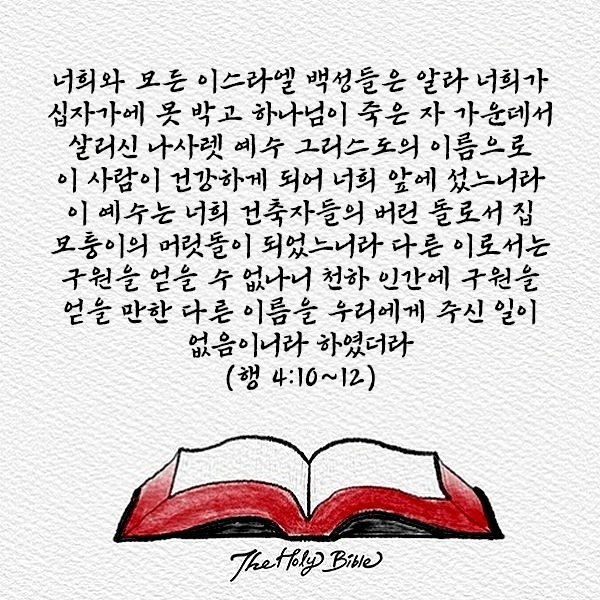 너희와 모든 이스라엘 백성들은 알라 너희가
십자가에 못 박고 하나님이 죽은 자 가운데서
살리신 나사렛 예수 그리스도의 이름으로
이 사람이 건강하게 되어 너희 앞에 섰느니라
이 예수는 너희 건축자들의 버린 돌로서 집
모퉁이의 머릿돌이 되었느니라 다른 이로서는
구원을 얻을 수 없나니 천하 인간에 구원을
얻을 만한 다른 이름을 우리에게 주신 일이
없음이니라 하였더라
(행 4:10~12)
The Holy Bible